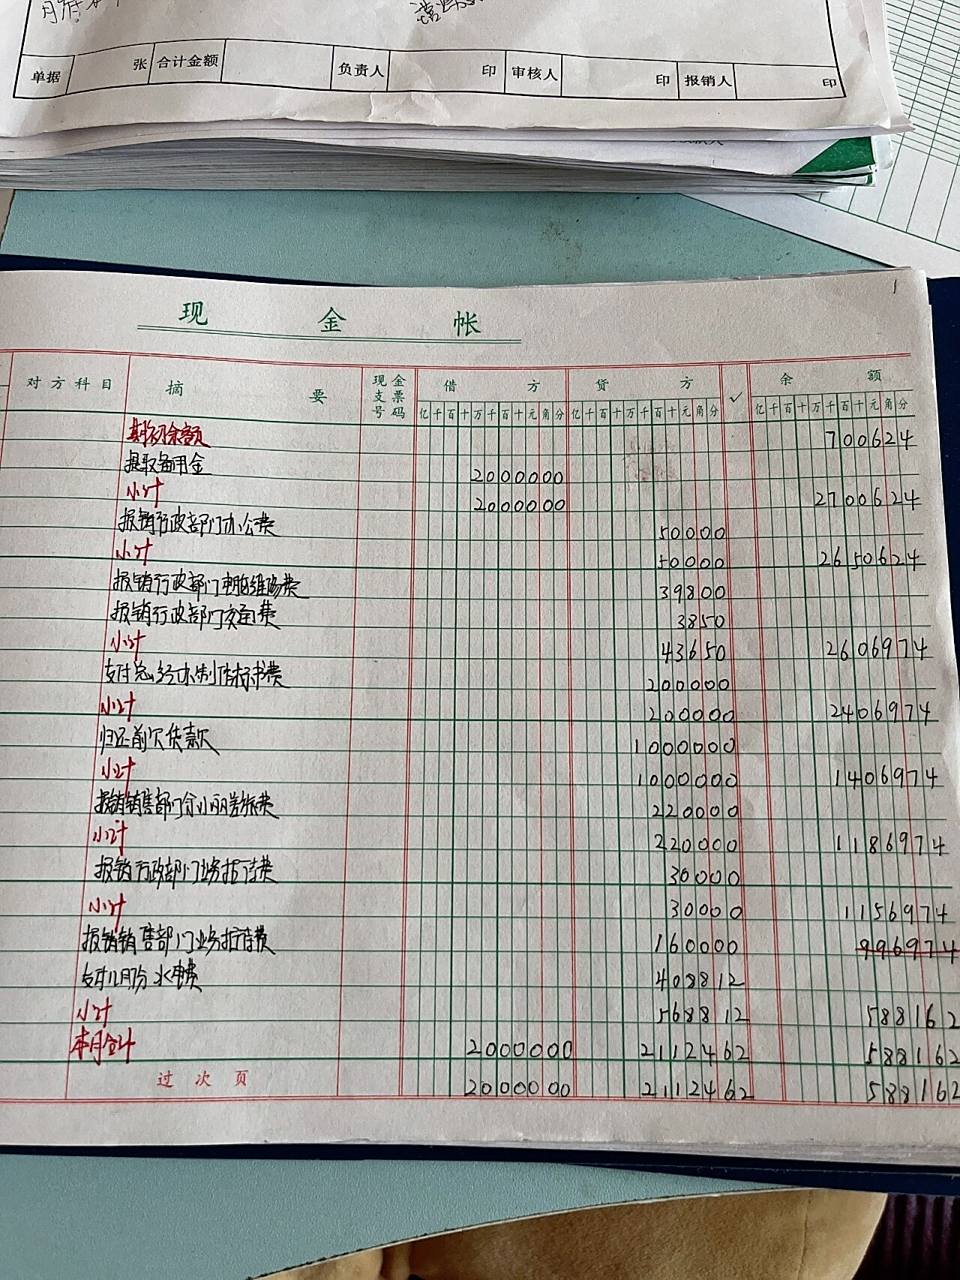 单据 张 合计金额 负责人 印 审核人 印 报销人 印
1
现金帐
对方科目 摘要 现金支票号码 借方 贷方 ✓ 余额
亿千百十万千百十元角分 亿千百十万千百十元角分 亿千百十万千百十元角分
期初余额 700624
提取备用金 2000000
小计 2000000 2700624
报销行政部门办公费 50000
小计 50000 2650624
报销行政部门 费 39800
报销行政部门交通费 3850
小计 43650 2606974
支付总经办制作标书费 200000
小计 200000 2406974
归还前欠货款 1000000
小计 1000000 1406974
报销销售部门 差旅费 220000
小计 220000 1186974
报销行政部门业务招待费 30000
小计 30000 1156974
报销销售部门业务招待费 160000 996974
支付 月份水电费 408812
小计 568812 588162
本月合计 2000000 2112462 588162
过次页 2000000 2112462 588162